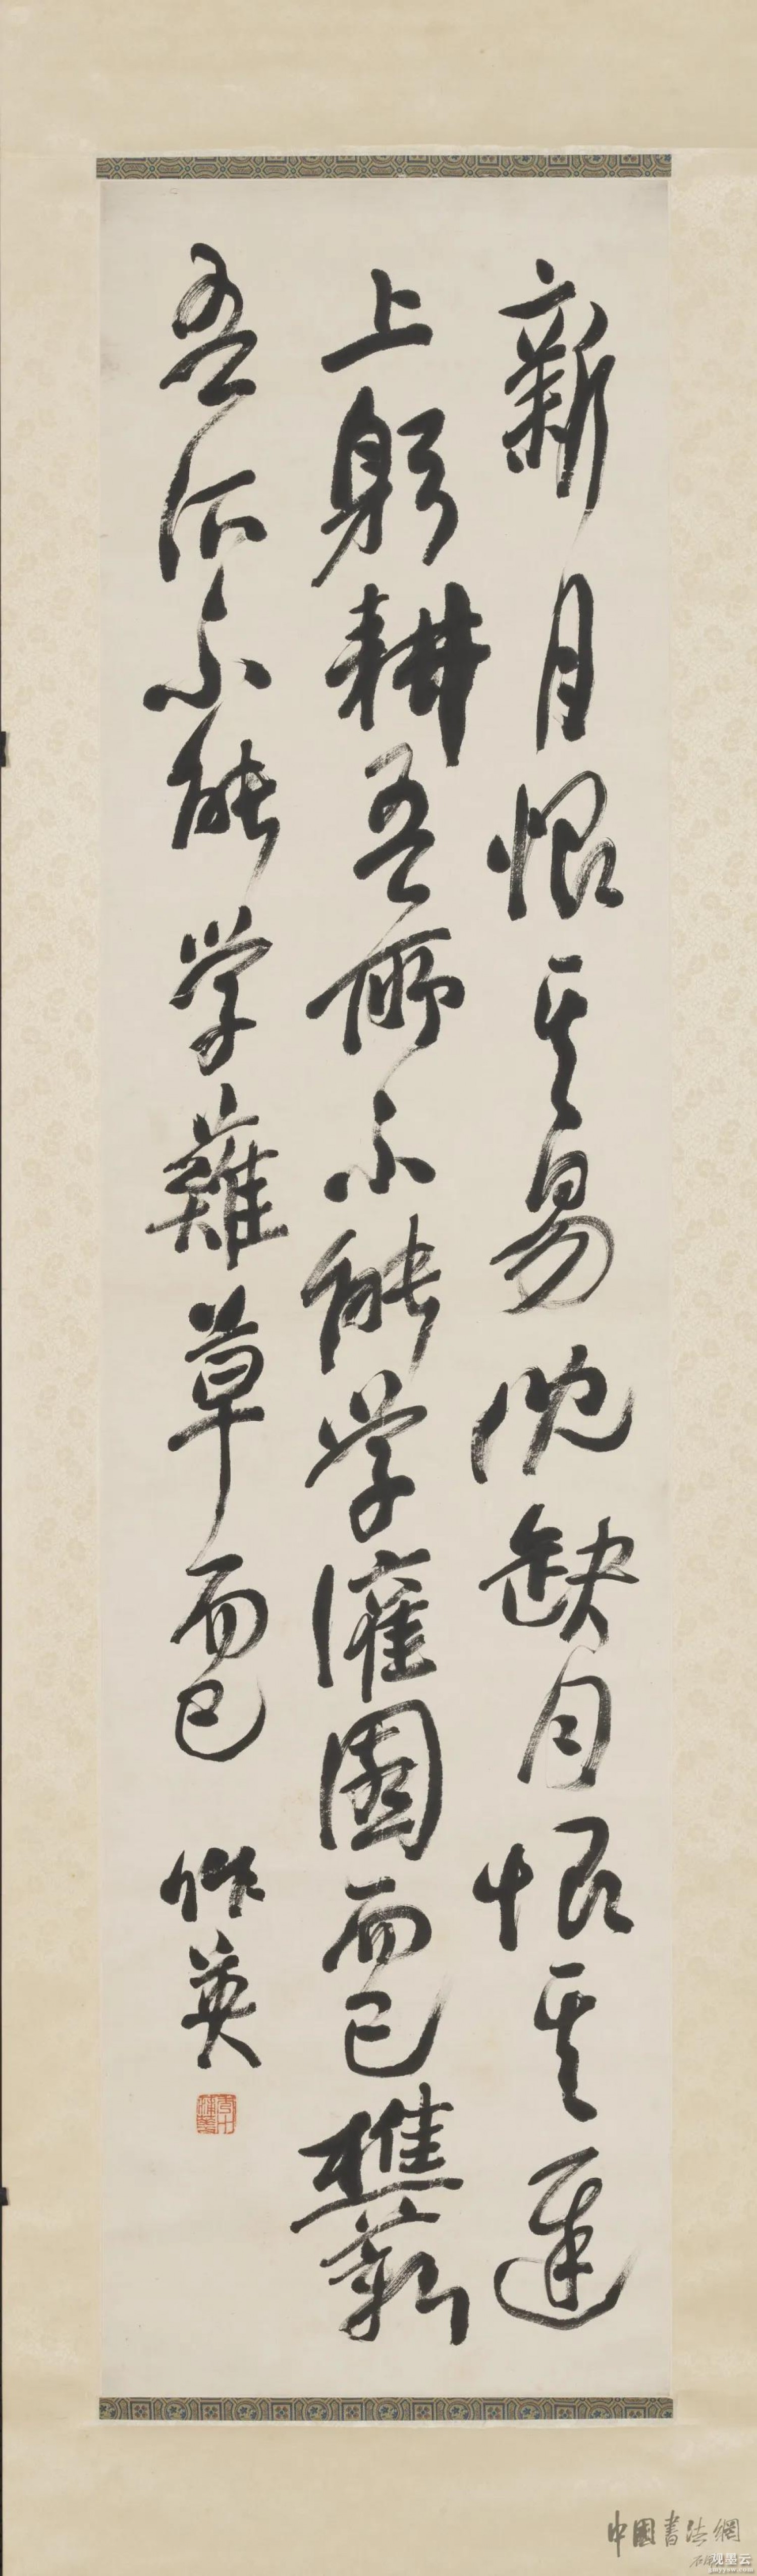 新月恨其易沉缺月恨其遲
上躬耕吾所不能學灌園而已樵薪
吾所不能學薙草而已 作英
中國書法網
观墨云